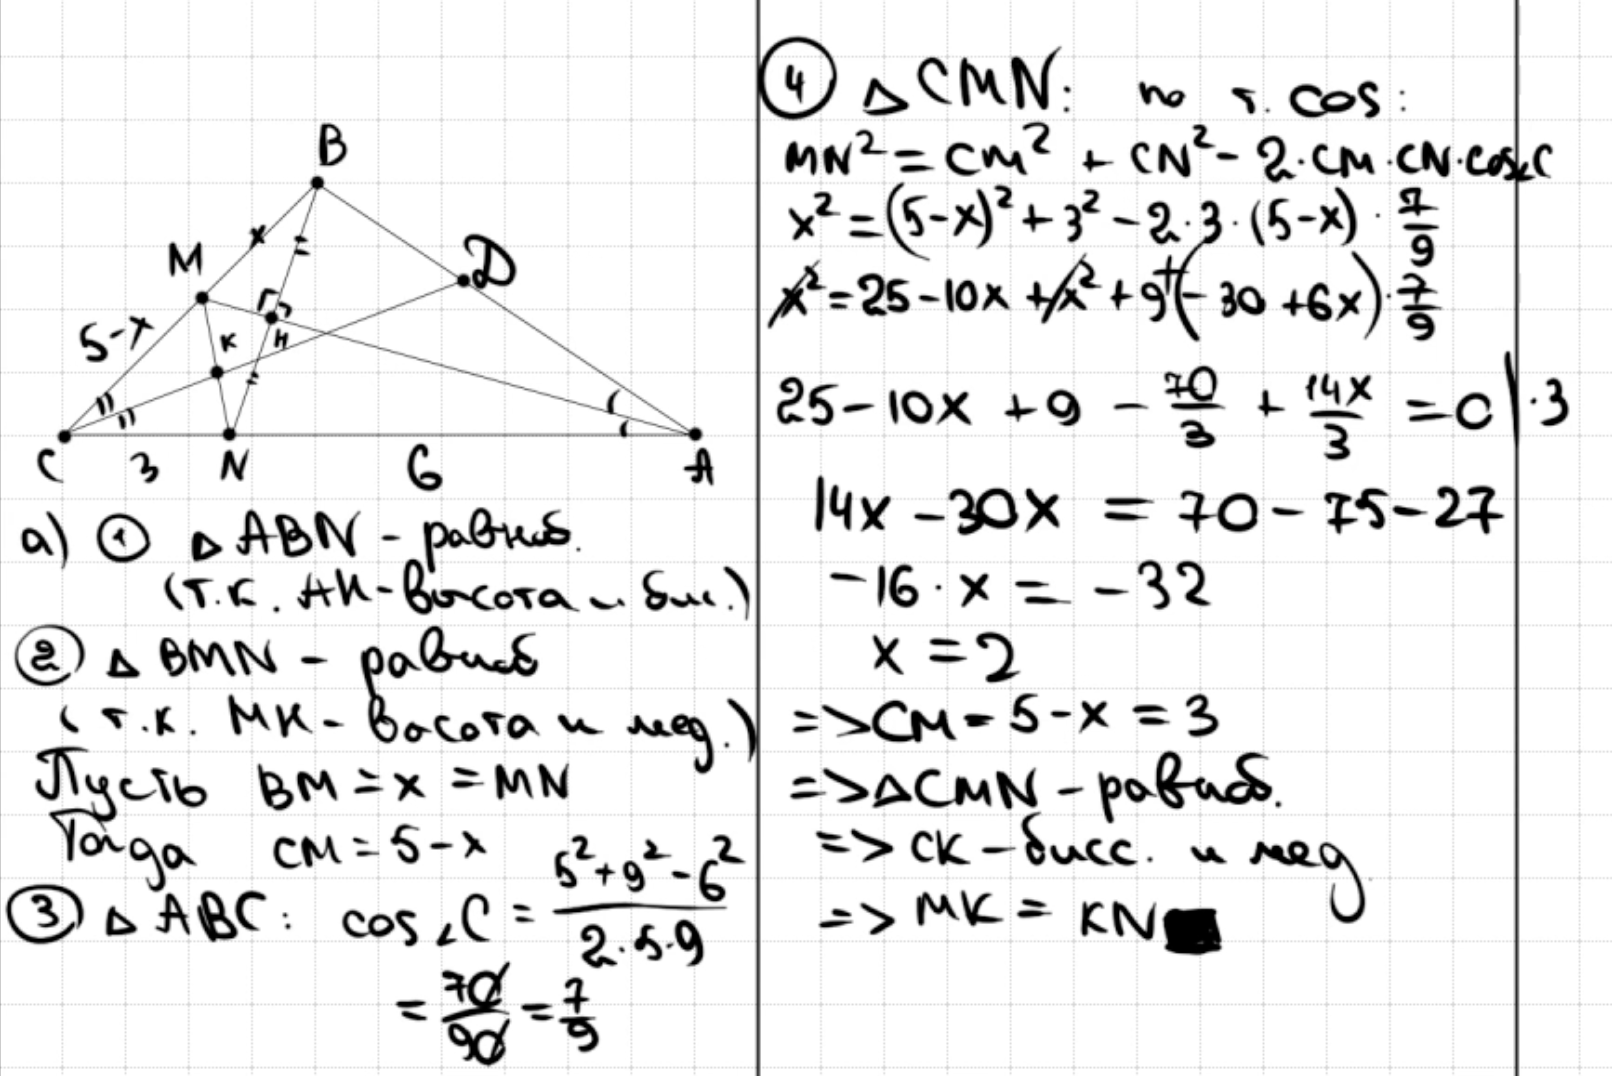 B
M
D
x
5-x
K
H
C
3
N
6
A
а) ① △ABN - равноб.
(т.к. AH - высота и бис.)
② △BMN - равноб
(т.к. MH - высота и мед.)
Пусть BM = x = MN
Тогда CM = 5-x
③ △ABC: cos∠C = (5²+9²-6²)/(2·5·9)
= 70/90 = 7/9
④ △CMN: по т. cos:
MN² = CM² + CN² - 2·CM·CN·cos∠C
x² = (5-x)² + 3² - 2·3·(5-x)·7/9
x² = 25-10x + x² + 9 + (-30+6x)·7/9
25-10x + 9 - 70/3 + 14x/3 = 0 |·3
14x - 30x = 70 - 75 - 27
-16·x = -32
x = 2
=> CM = 5-x = 3
=> △CMN - равноб.
=> CK - бисс. и мед.
=> MK = KN